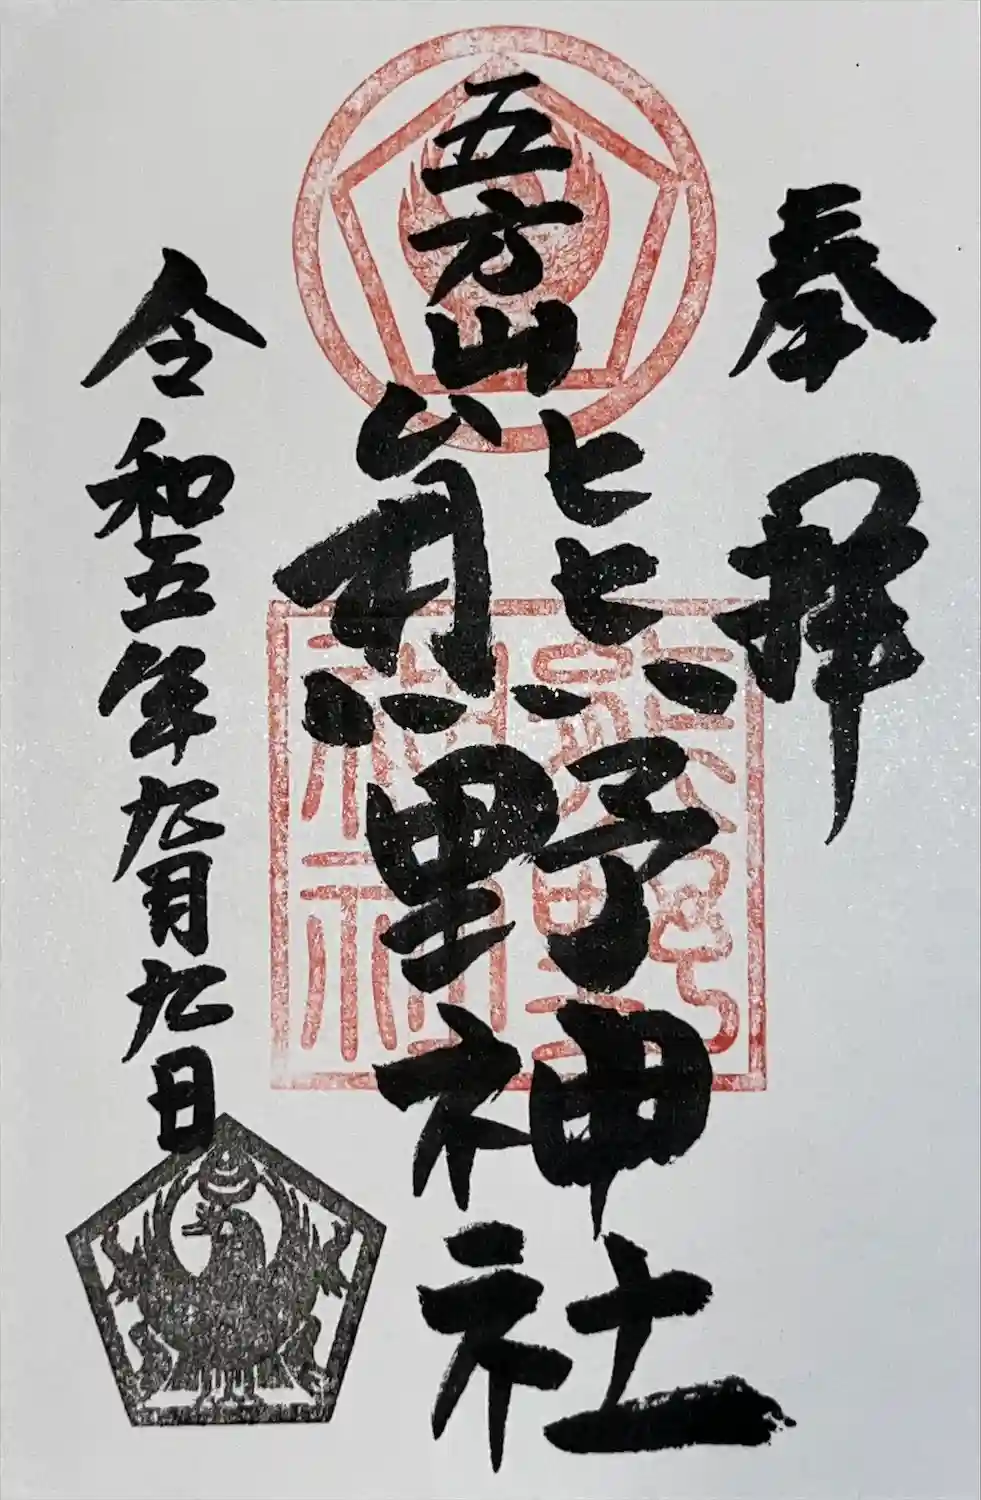 奉拝
五方山
熊野神社
令和五年九月九日
熊野
神社